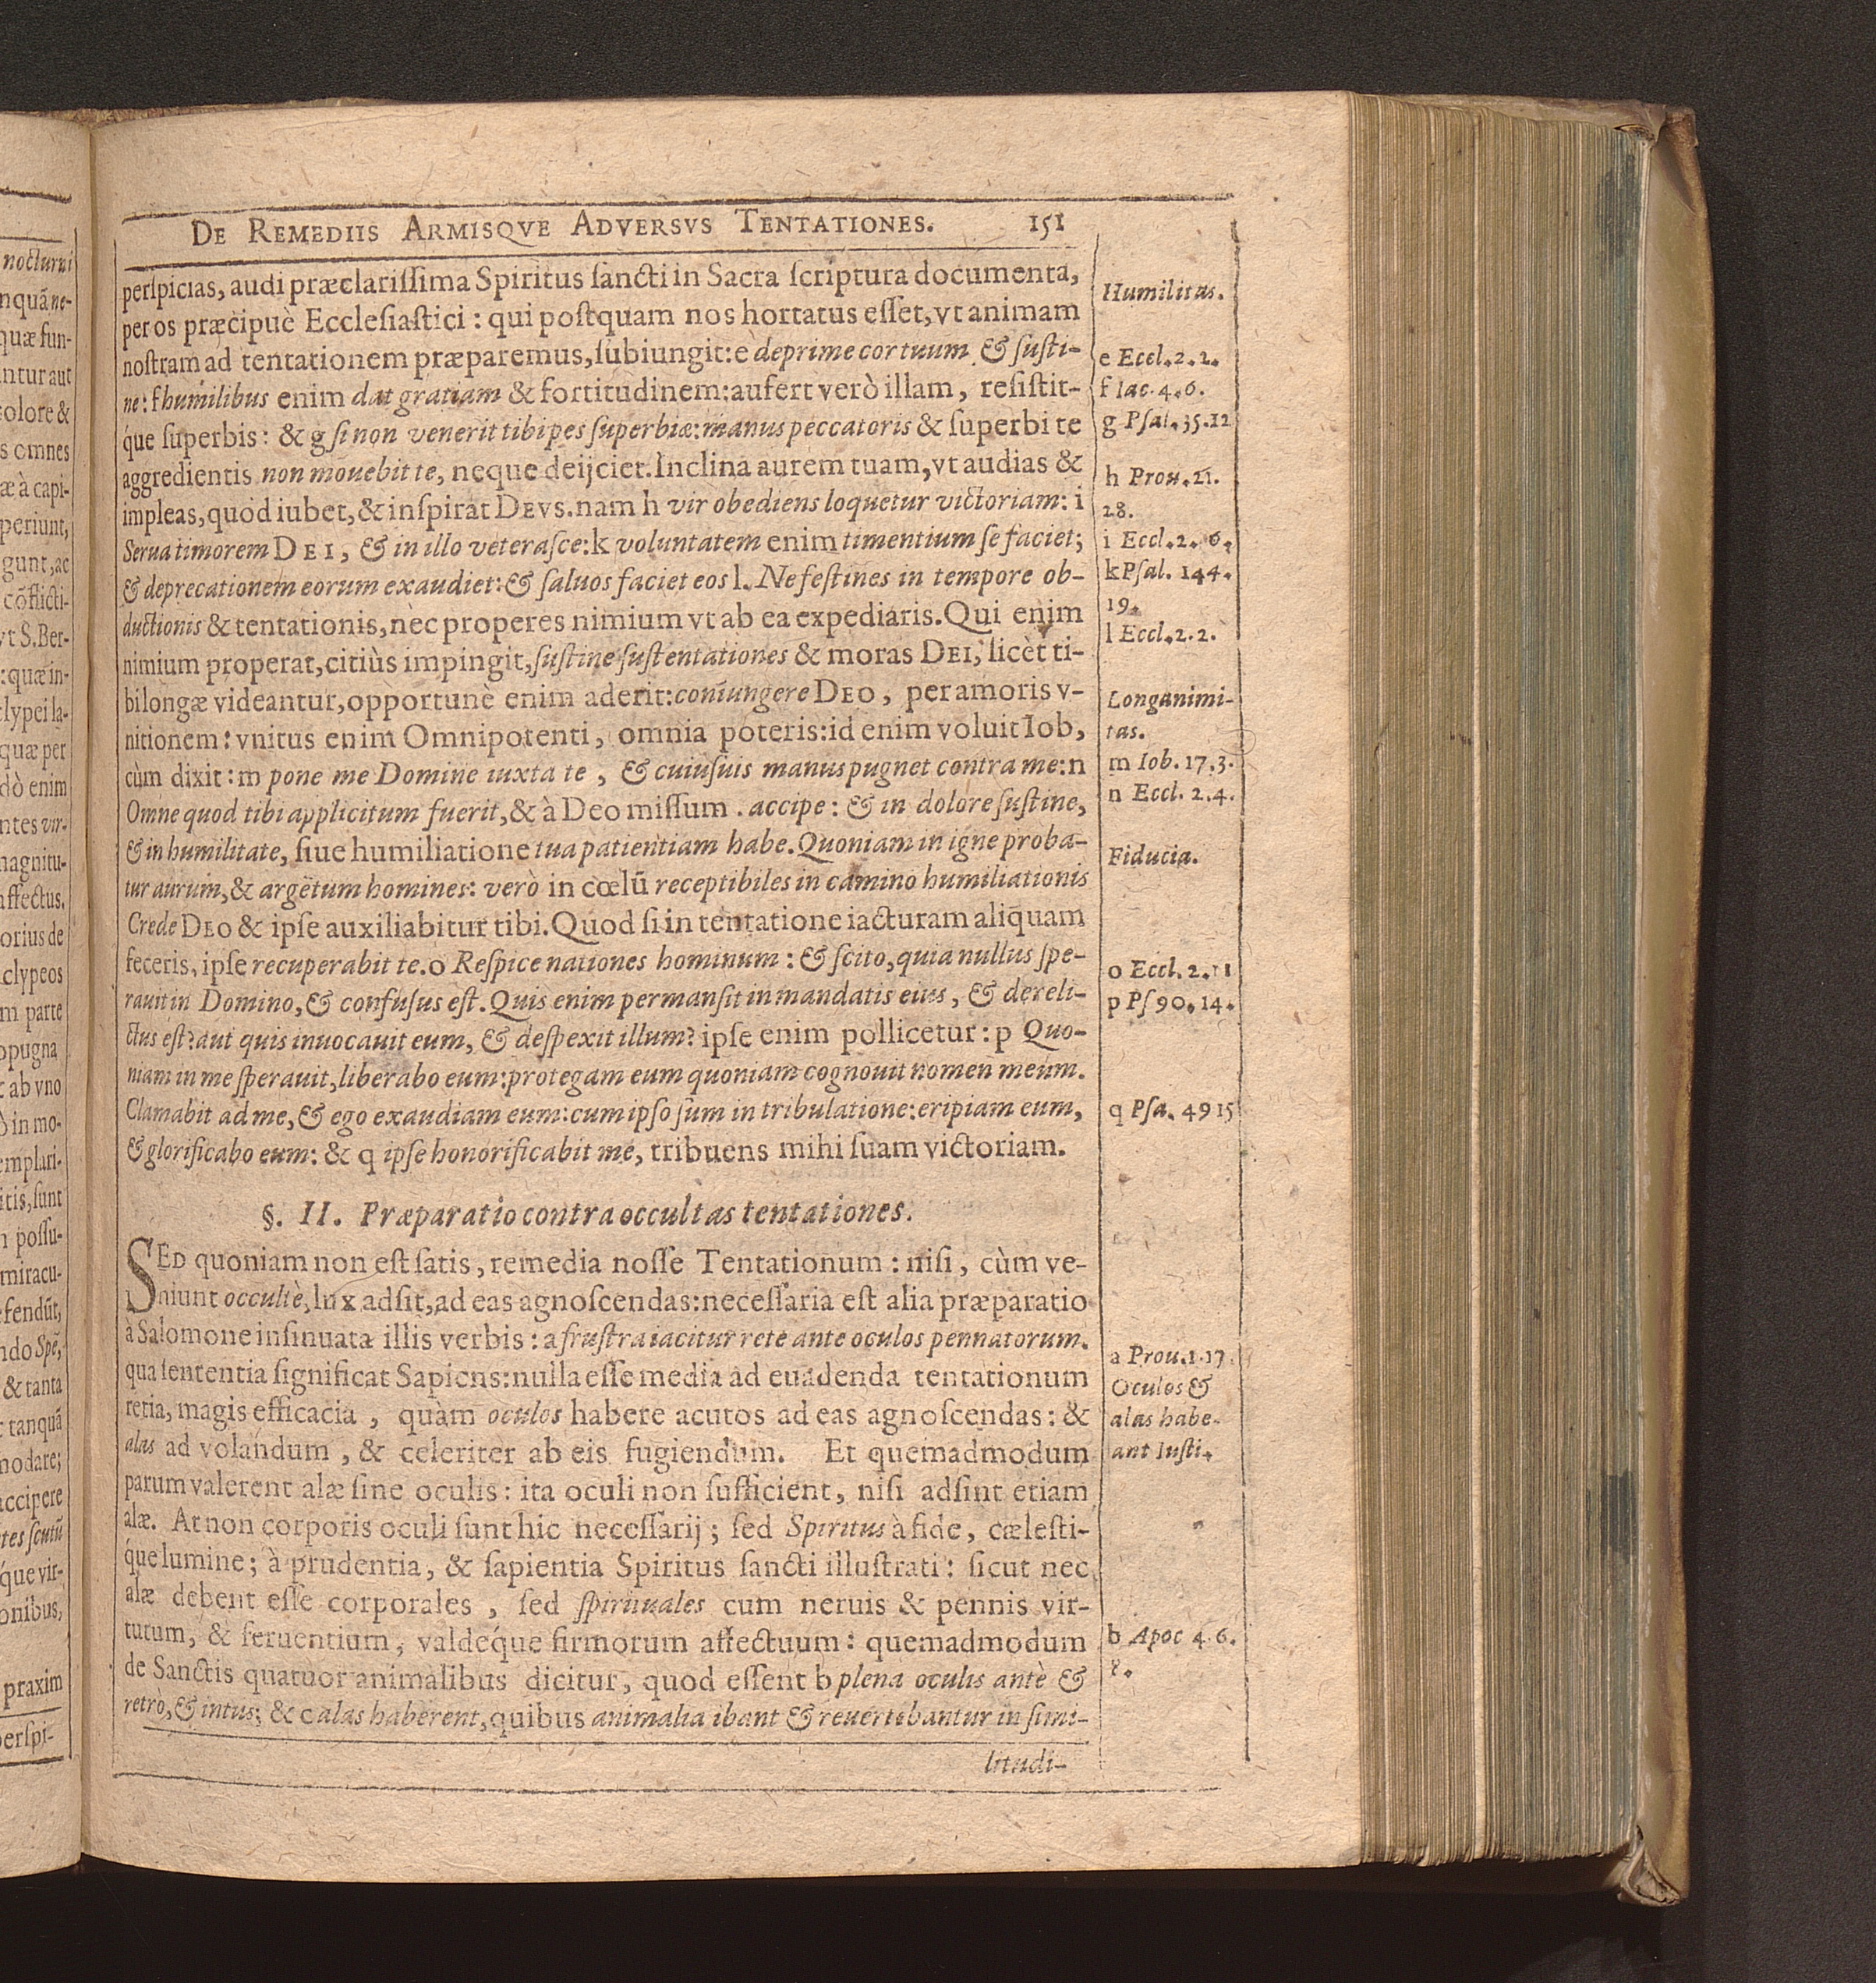 DE REMEDIIS ARMISQVE ADVERSVS TENTATIONES. 151
perſpicias, audi præclariſſima Spiritus ſancti in Sacra ſcriptura documenta,
per os præcipuè Eccleſiaſtici: qui poſtquam nos hortatus eſſet, vt animam
noſtram ad tentationem præparemus, ſubiungit: e deprime cor tuum & ſuſti-
ne: f humilibus enim dat gratiam & fortitudinem: aufert verò illam, reſiſtit-
q́ue ſuperbis: & g ſi non venerit tibi pes ſuperbiæ: manus peccatoris & ſuperbi te
aggredientis non mouebit te, neque deijciet. Inclina aurem tuam, vt audias &
impleas, quod iubet, & inſpirat DEVS. nam h vir obediens loquetur victoriam: i
Serua timorem DEI, & in illo veteraſce: k voluntatem enim timentium ſe faciet;
& deprecationem eorum exaudiet: & ſaluos faciet eos l. Ne feſtines in tempore ob-
ductionis & tentationis, nèc properes nimium vt ab ea expediaris. Qui enim
nimium properat, citiùs impingit, ſuſtine ſuſtentationes & moras DEI, licèt ti-
bi longæ videantur, opportunè enim aderit: coniungere DEO, per amoris v-
nitionem: vnitus enim Omnipotenti, omnia poteris: id enim voluit Iob,
cùm dixit: m pone me Domine iuxta te, & cuiuſuis manus pugnet contra me: n
Omne quod tibi applicitum fuerit, & à Deo miſſum. accipe: & in dolore ſuſtine,
& in humilitate, ſiue humiliatione tua patientiam habe. Quoniam in igne proba-
tur aurum, & argētum homines: verò in cœlū receptibiles in camino humiliationis
Crede DEO & ipſe auxiliabitur tibi. Quod ſi in tentatione iacturam aliquam
feceris, ipſe recuperabit te. o Reſpice nationes hominum: & ſcito, quia nullus ſpe-
rauit in Domino, & confuſus eſt. Quis enim permanſit in mandatis eius, & dereli-
ctus eſt? aut quis inuocauit eum, & deſpexit illum? ipſe enim pollicetur: p Quo-
niam in me ſperauit, liberabo eum: protegam eum quoniam cognouit nomen meum.
Clamabit ad me, & ego exaudiam eum: cum ipſo ſum in tribulatione: eripiam eum,
& glorificabo eum: & q ipſe honorificabit me, tribuens mihi ſuam victoriam.
§. II. Præparatio contra occultas tentationes.
SED quoniam non eſt ſatis, remedia noſſe Tentationum: niſi, cùm ve-
niunt occultè, lux adſit, ad eas agnoſcendas: neceſſaria eſt alia præparatio
à Salomone inſinuata illis verbis: a fruſtra iacitur rete ante oculos pennatorum.
qua ſententia ſignificat Sapiens: nulla eſſe media ad euadenda tentationum
retia, magis efficacia, quàm oculos habere acutos ad eas agnoſcendas: &
alas ad volandum, & celeriter ab eis fugiendum. Et quemadmodum
parum valerent alæ ſine oculis: ita oculi non ſufficient, niſi adſint etiam
alæ. At non corporis oculi ſunt hic neceſſarij; ſed Spiritus à fide, cæleſti-
q́ue lumine; à prudentia, & ſapientia Spiritus ſancti illuſtrati: ſicut nec
alæ debent eſſe corporales, ſed ſpirituales cum neruis & pennis vir-
tutum, & feruentium, valdeq́ue firmorum affectuum: quemadmodum
de Sanctis quatuor animalibus dicitur, quod eſſent b plena oculis antè &
retrò, & intus; & c alas haberent, quibus animalia ibant & reuertebantur in ſimi-
litudi-
Humilitas.
e Eccl. 2. 2.
f Iac. 4. 6.
g Pſal. 35. 12
h Prou. 21.
28.
i Eccl. 2. 6.
k Pſal. 144.
19.
l Eccl. 2. 2.
Longanimi-
tas.
m Iob. 17. 3.
n Eccl. 2. 4.
Fiducia.
o Eccl. 2. 11
p Pſ 90. 14.
q Pſa. 49 15
a Prou. 1. 17.
Oculos &
alas habe-
ant Iuſti.
b Apoc 4. 6.
8.